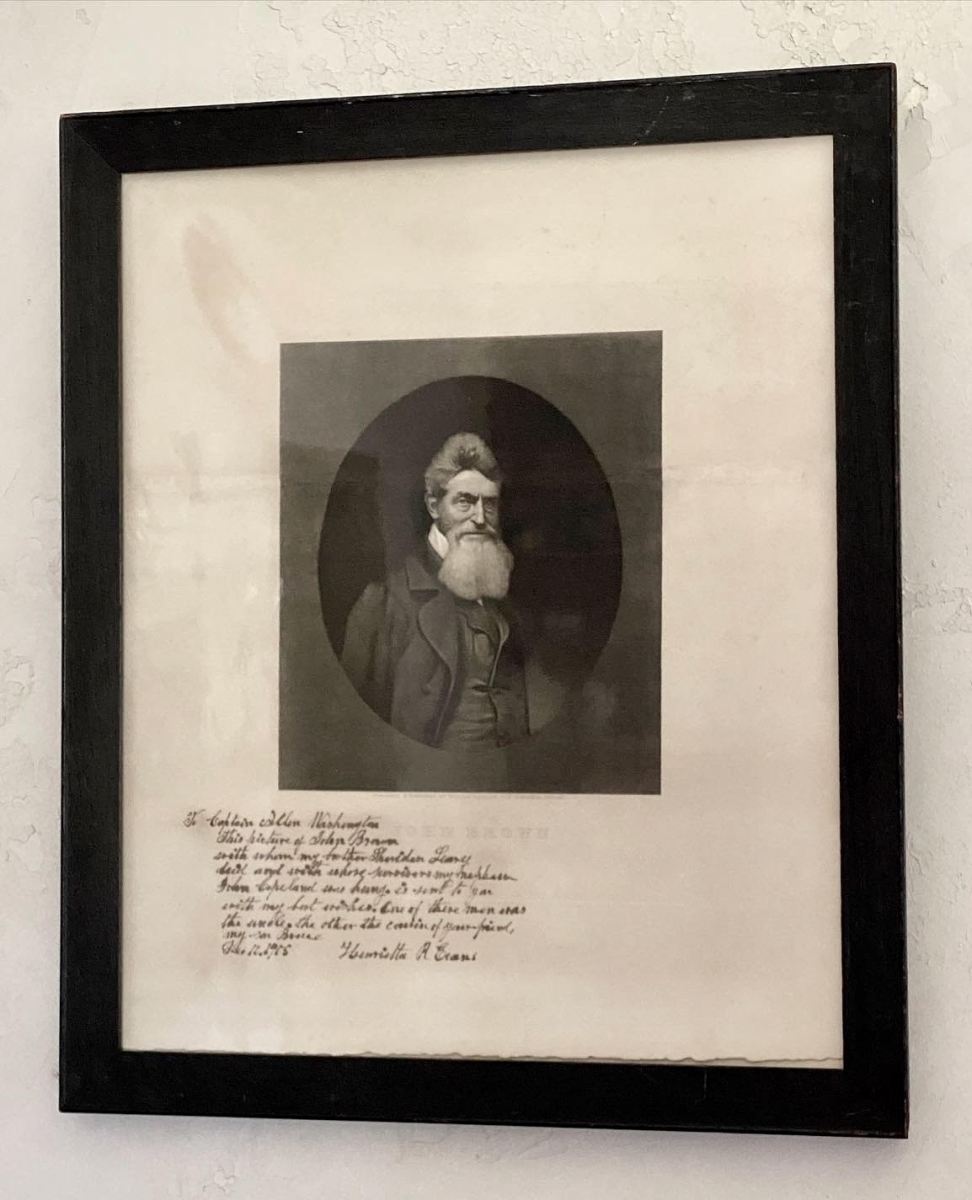 JOHN BROWN
To Captain Allen Washington
This picture of John Brown
with whom my brother Sheridan Leary
died and with whose survivors my nephew
John Copeland was hung is sent to you
with my best wishes. One of these men was
the uncle, the other the cousin of your friend,
my son
1908
Henrietta R. Evans